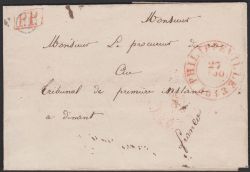 P.P.
Monsieur
Monsieur Le procureur du
PHILIPPEVILLE
Tribunal de première instance
a dinant
franco